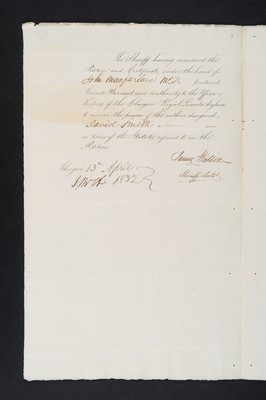 The Sheriff having considered the
Petition and Certificate under the hand of
John Macfarlane M.D. produced,
Grants Warrant and Authority to the
Keepers of the Glasgow Royal Lunatic Asylum
to receive the person of the within designed
Daniel Smith
in terms of the Statute referred to in the
Petition
Glasgow 13th April
1832
James
Sheriff Subst.